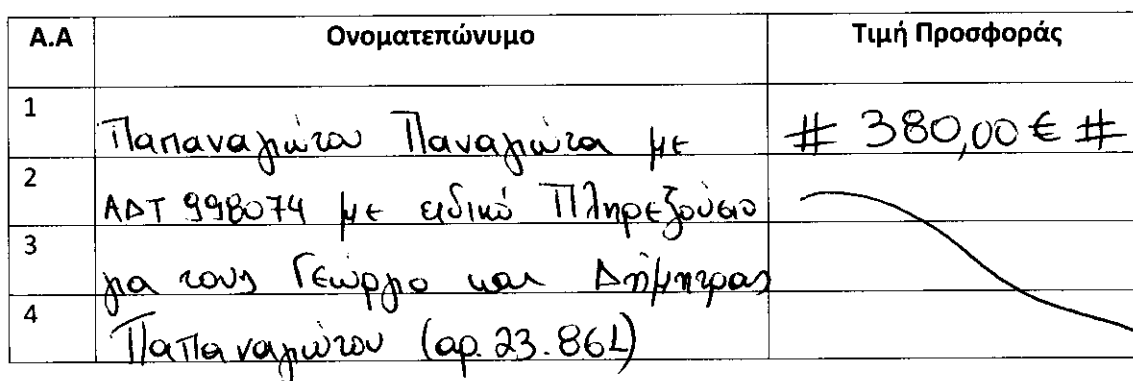 Α.Α Ονοματεπώνυμο Τιμή Προσφοράς
1 Παπαναγιώτου Παναγιώτα με # 380,00 € #
2 ΑΔΤ 998074 με ειδικό Πληρεξούσιο
3 για τους Γεώργιο και Δήμητρας
4 Παπαναγιώτου (αρ. 23.861)